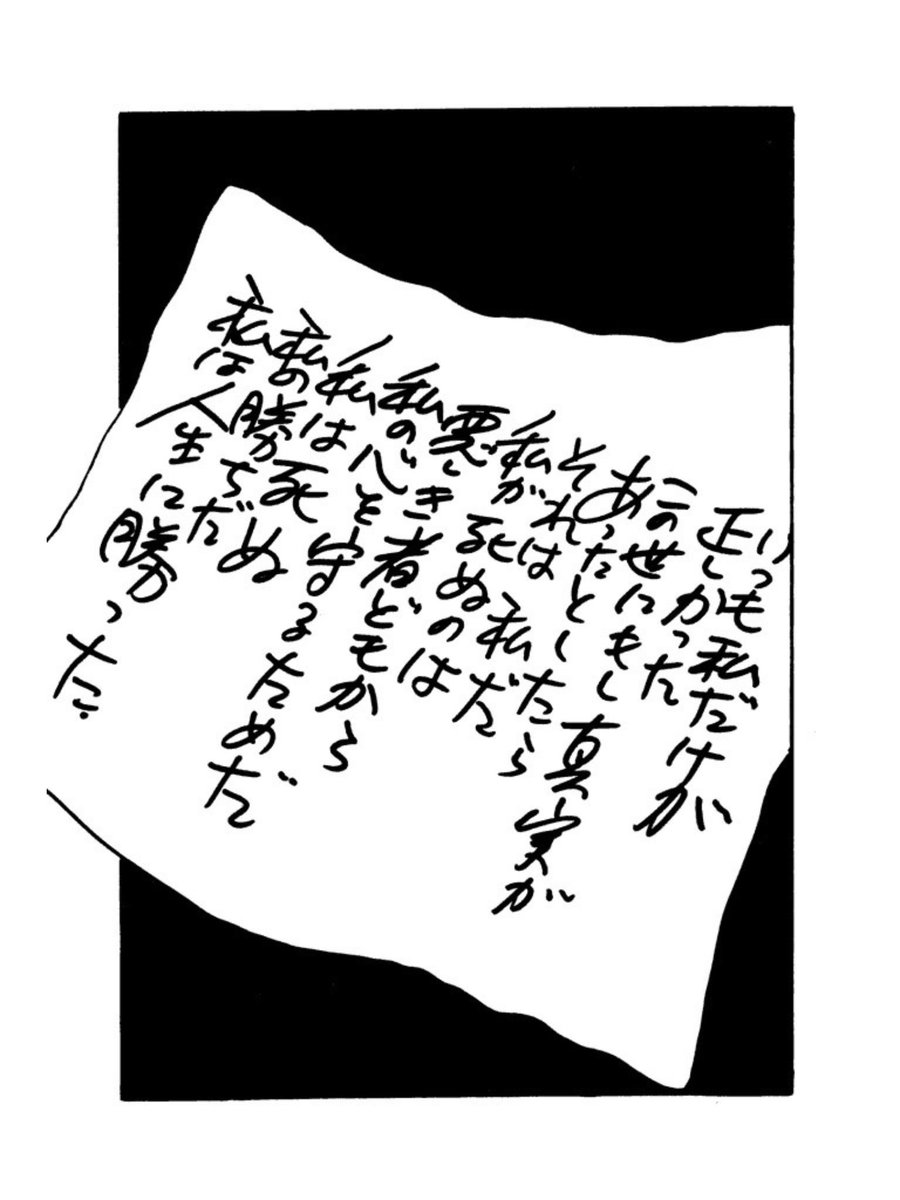 いつも私だけが
正しかった
この世にもし真実が
あったとしたら
それは私だ
私が死ぬのは
悪しき者どもから
私の心を守るためだ
私は死ぬ
私の勝ちだ
私は人生に勝った